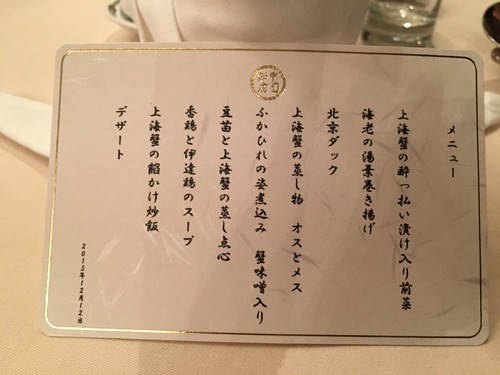 中国
飯店
メニュー
上海蟹の酔っ払い漬け入り前菜
海老の湯葉巻き揚げ
北京ダック
上海蟹の蒸し物 オスとメス
ふかひれの姿煮込み 蟹味噌入り
豆苗と上海蟹の蒸し点心
香鶏と伊達鶏のスープ
上海蟹の餡かけ炒飯
デザート
2015年12月12日